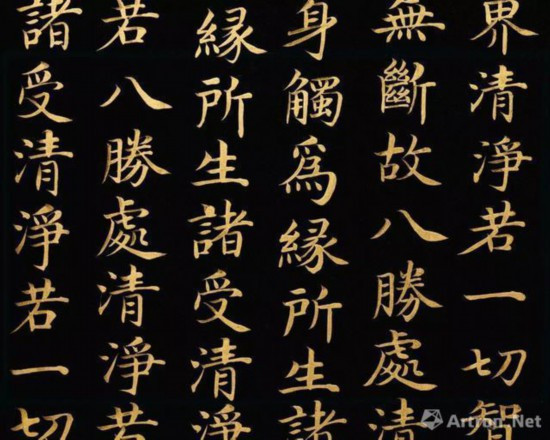 界清淨若一切智
無斷故八勝處清
身觸為緣所生諸
緣所生諸受清淨
若八勝處清淨若
諸受清淨若一切
Artron.Net